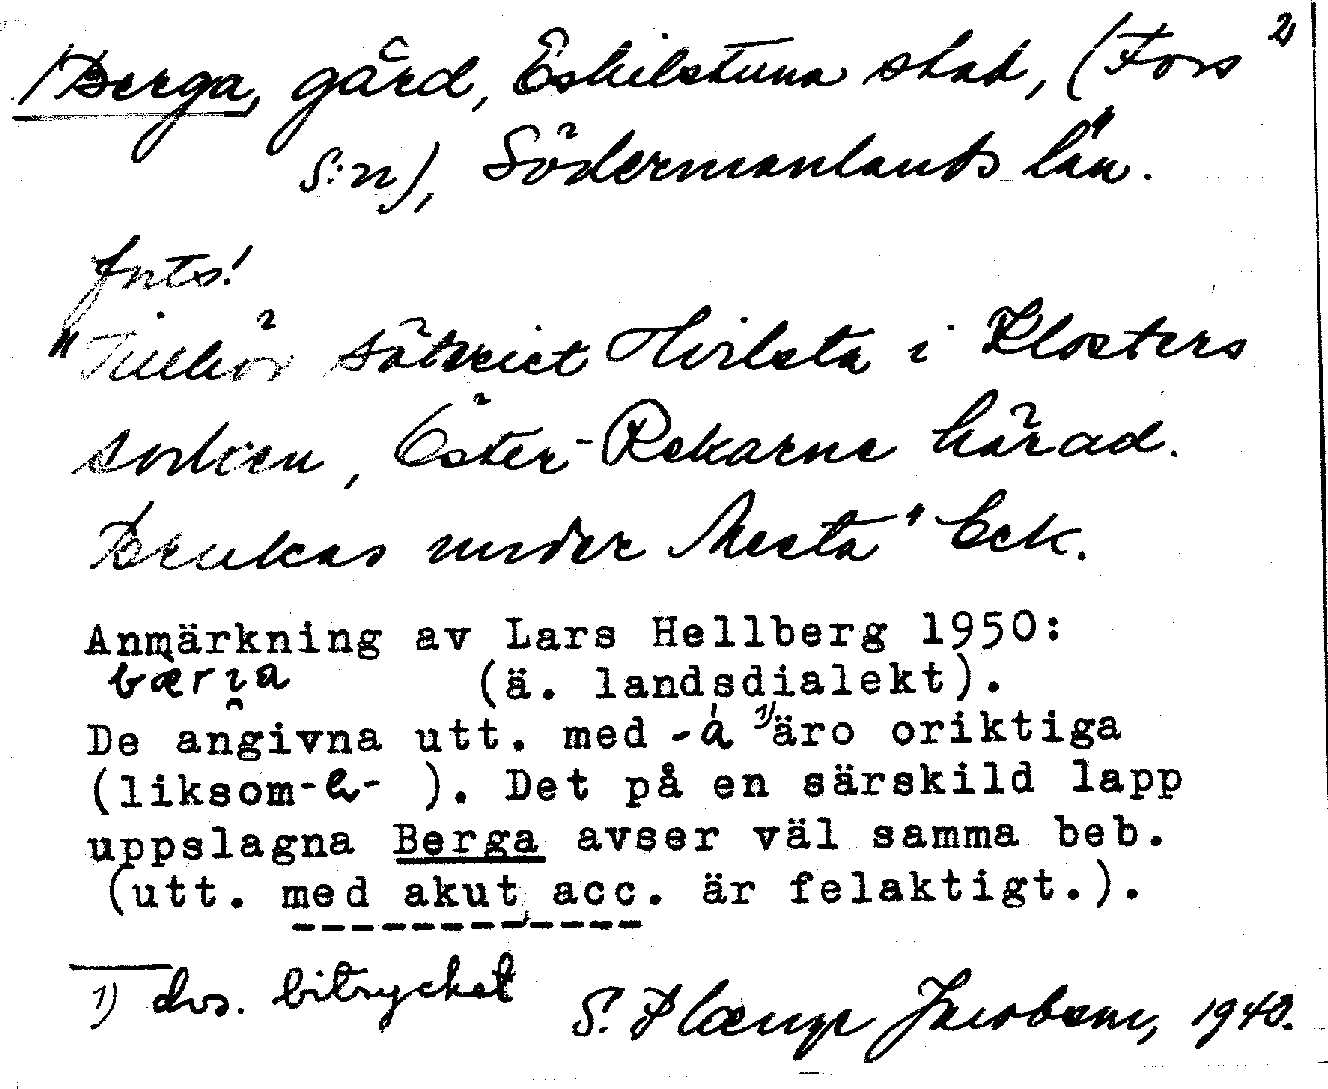 /Berga, gård, Eskilstuna stad, (Fors 2)
s:n), Södermanlands län.
forts!
"Tillhör säteriet Hvilsta i Klosters
socken, Öster-Rekarne härad.
Brukas under Mesta" Eck.
Anmärkning av Lars Hellberg 1950:
bærı̯a (ä. landsdialekt).
De angivna utt. med -à 1) äro oriktiga
(liksom -e- ). Det på en särskild lapp
uppslagna Berga avser väl samma beb.
(utt. med akut acc. är felaktigt.).
1) dvs. bitrycket
S. Jacobson, 1940.